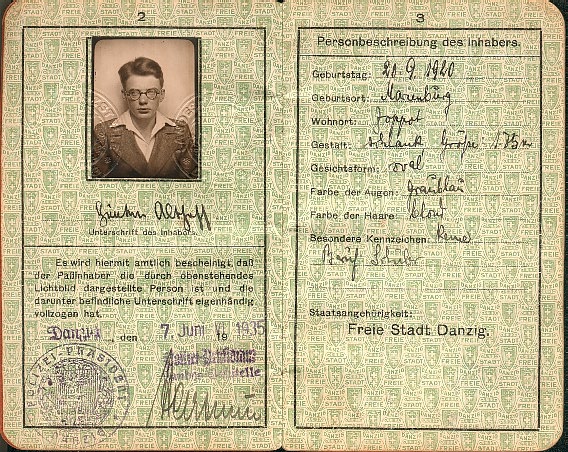 2
Günter Althoff
Unterschrift des Inhabers
Es wird hiermit amtlich bescheinigt, daß
der Paßinhaber die durch obenstehendes
Lichtbild dargestellte Person ist und die
darunter befindliche Unterschrift eigenhändig
vollzogen hat.
Danzig, den 7. Juni 1935
POLIZEI-PRÄSIDENT
DANZIG
3
Personbeschreibung des Inhabers.
Geburtstag: 21.9.1920
Geburtsort: Marienburg
Wohnort: Zoppot
Gestalt: schlank Größe: 1.75 m
Gesichtsform: oval
Farbe der Augen: Graublau
Farbe der Haare: blond
Besondere Kennzeichen: keine
Beruf: Schüler
Staatsangehörigkeit:
Freie Stadt Danzig.